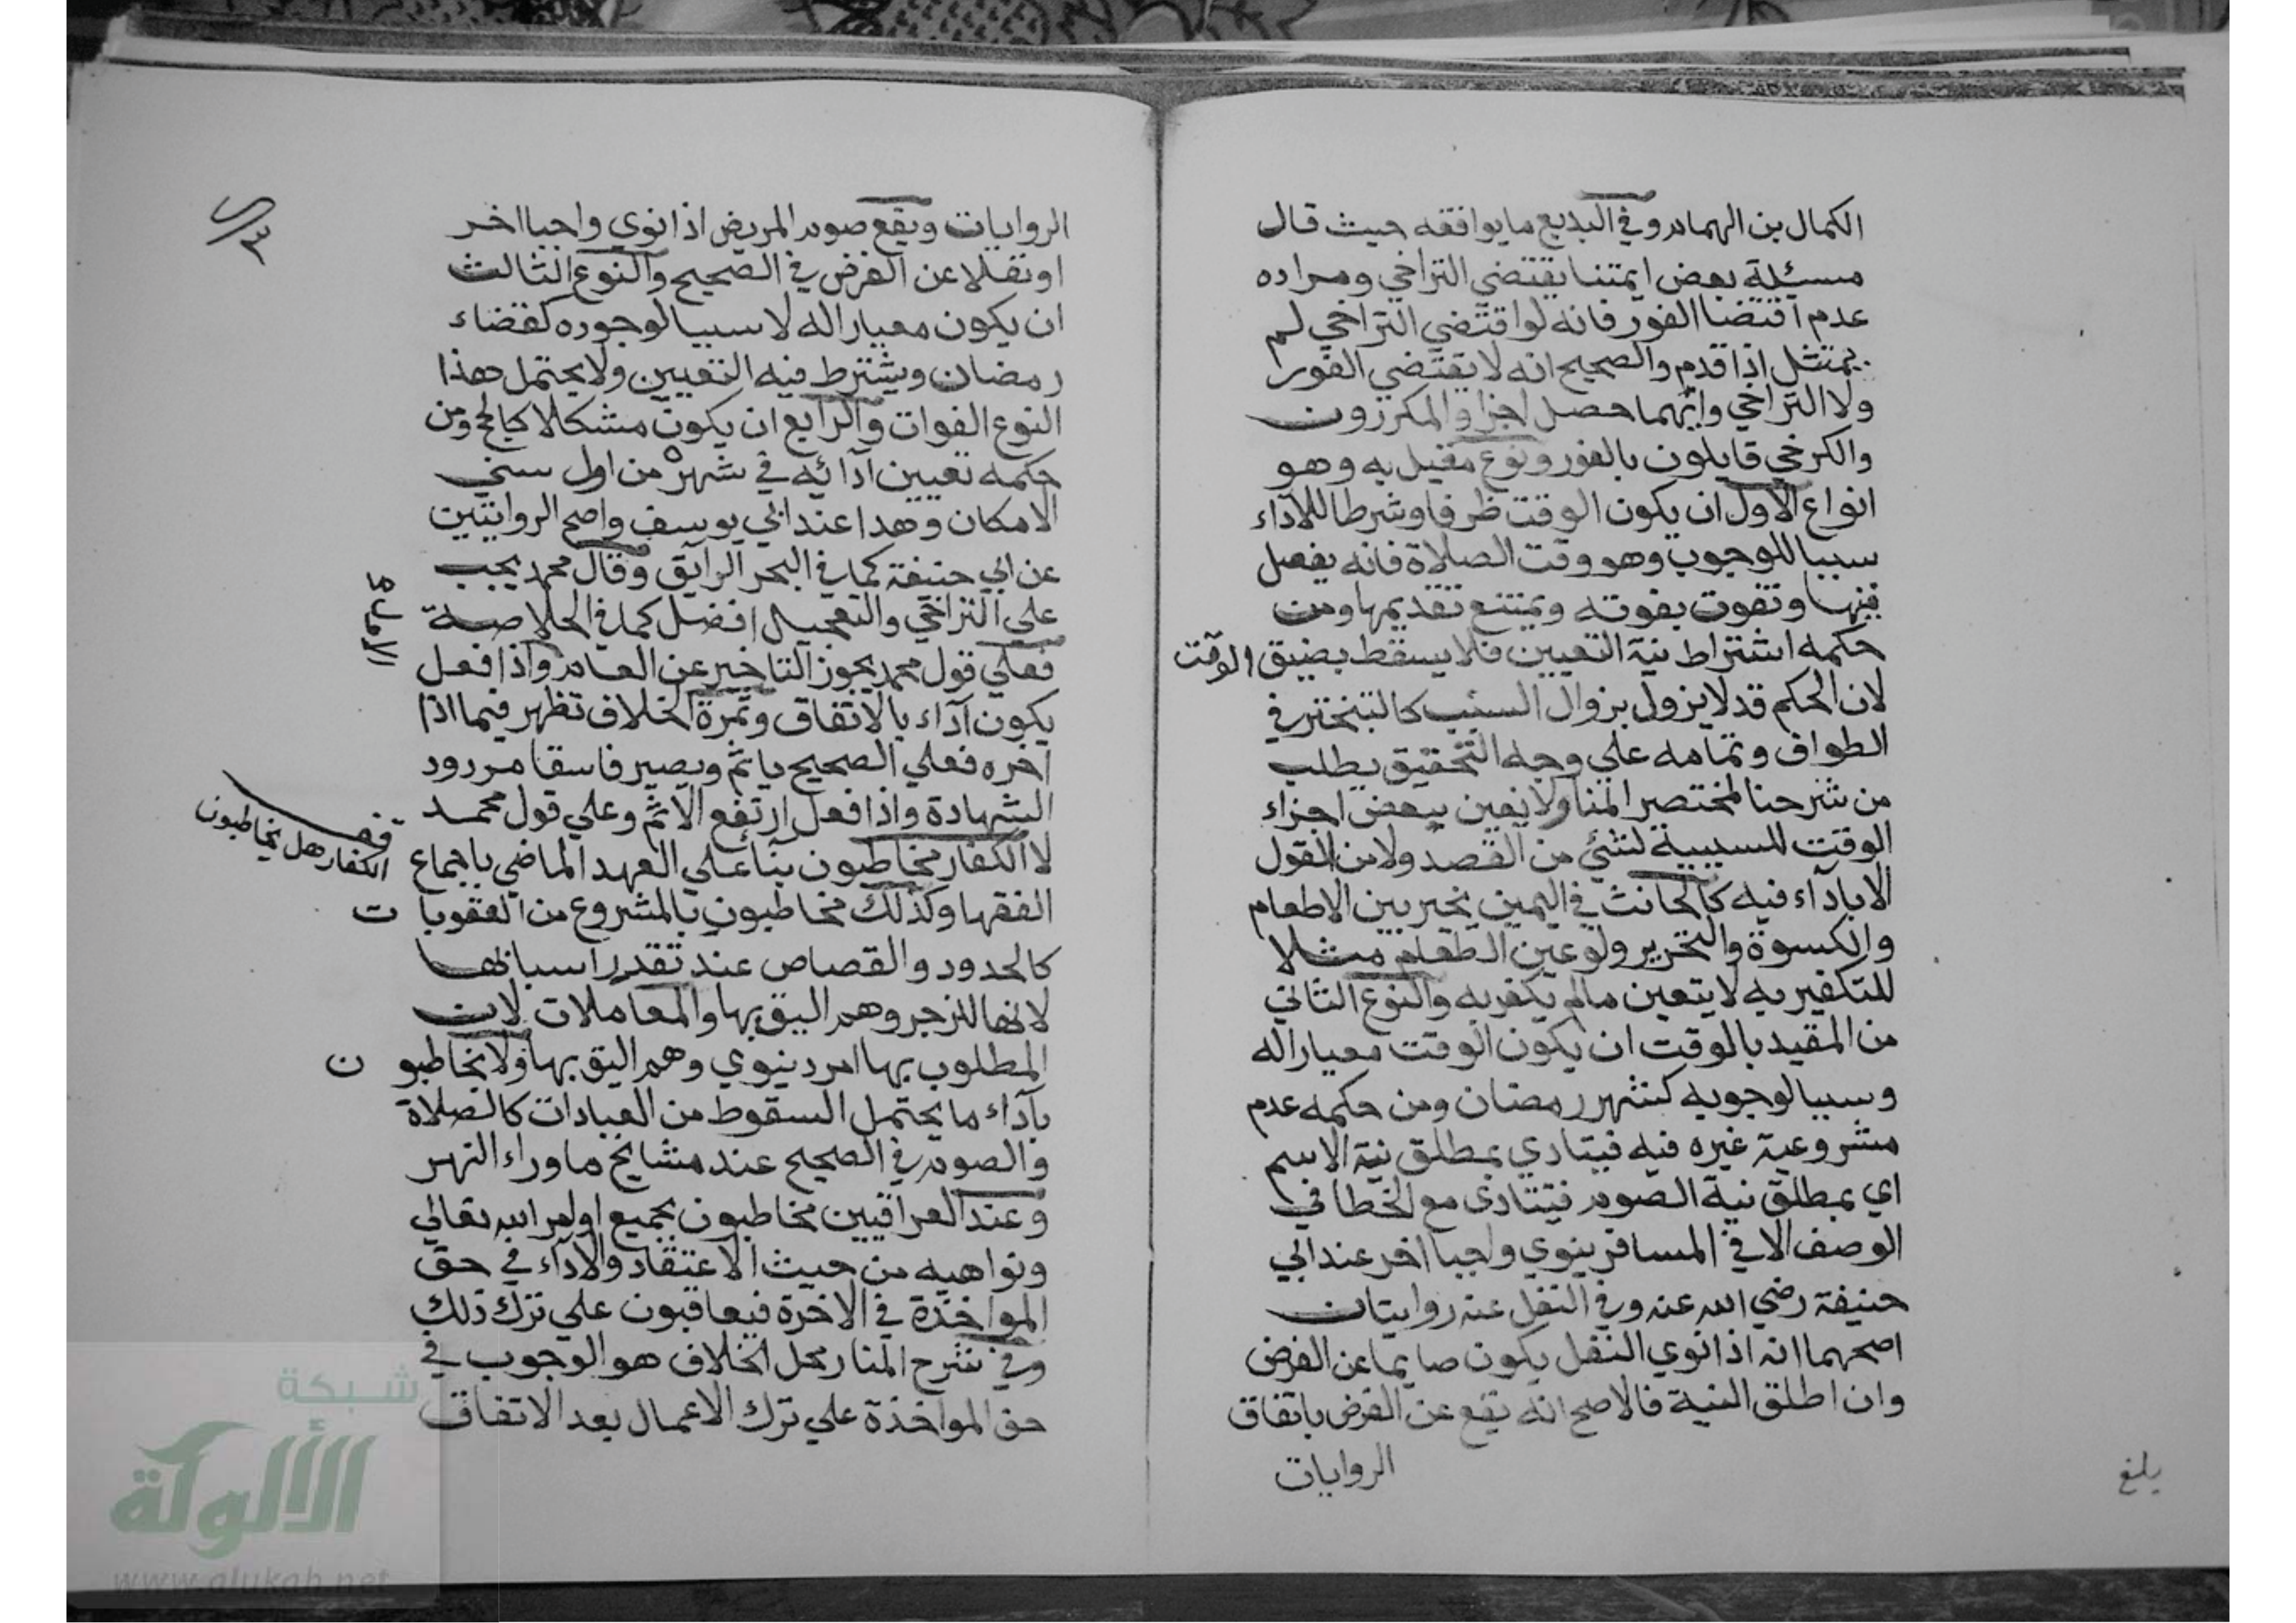 الكمال بن الهمام وفي البديع ما يوافقه حيث قال
مسئلة بعض ايمتنا يقتضي التراخي ومراده
عدم اقتضا الفور فانه لو اقتضي التراخي لم
يمتثل اذا قدم والصحيح انه لا يقتضي الفور
ولا التراخي وايهما حصل اجزا والمكررون
والكرخي قايلون بالفور ونوع مقيد به وهو
انواع الاول ان يكون الوقت ظرفا وشرطا للاداء
سببا للوجوب وهو وقت الصلاة فانه يفعل
فيها وتفوت بفوته ويمتنع تقديمها ومن
حكمه اشتراط نية التعيين فلا يسقط بضيق الوقت
لان الحكم قد لا يزول بزوال السبب كالتبختر في
الطواف وتمامه علي وجه التحقيق يطلب
من شرحنا لمختصر المنار ولا يعين ببعض اجزاء
الوقت للسببية لشئ من القصد ولا من القول
الا باداء فيه كالحانث في اليمين يخير بين الاطعام
والكسوة والتحرير ولو عين الطعام مثلا
للتكفير به لا يتعين مالم يكفر به والنوع الثاني
من المقيد بالوقت ان يكون الوقت معيارا له
وسببا لوجوبه كشهر رمضان ومن حكمه عدم
مشروعية غيره فيه فيتادي بمطلق نية الاسم
اي بمطلق نية الصوم فيتادى مع الخطا في
الوصف الا في المسافر ينوي واجبا اخر عند ابي
حنيفة رضي الله عنه وفي النفل عنه روايتان
اصحهما انه اذا نوي النفل يكون صايما عن الفرض
وان اطلق النية فالاصح انه يقع عن الفرض باتفاق
الروايات
بلغ
٣
الروايات ويقع صوم المريض اذا نوي واجبا اخر
او نفلا عن الفرض في الصحيح والنوع الثالث
ان يكون معيارا له لا سببا لوجوده كقضاء
رمضان ويشترط فيه التعيين ولا يحتمل هذا
النوع الفوات والرابع ان يكون مشكلا كالحج ومن
حكمه تعيين ادائه في شهره من اول سني
الامكان وهدا عند ابي يوسف واصح الروايتين
عن ابي حنيفة كما في البحر الرايق وقال محمد يجب
علي التراخي والتعجيل افضل كما في الخلاصة
فعلي قول محمد يجوز التاخير عن العام واذا فعل
يكون آداء بالاتفاق وثمرة الخلاف تظهر فيما اذا
اخره فعلي الصحيح ياثم ويصير فاسقا مردود
الشهادة واذا فعل ارتفع الاثم وعلي قول محمد
لا الكفار مخاطبون بنآء علي العهد الماضي باجماع
قف
الكفار هل يخاطبون
الفقها وكذلك مخاطبون بالمشروع من العقوبات
كالحدود والقصاص عند تقدر اسبابها
لانها للزجر وهم اليق بها والمعاملات لان
المطلوب بها امر دينوي وهم اليق بها ولا يخاطبون
بآداء ما يحتمل السقوط من العبادات كالصلاة
والصوم في الصحيح عند مشايخ ما وراء النهر
وعند العراقيين مخاطبون بجميع اوامر الله تعالي
ونواهيه من حيث الاعتقاد والادآء في حق
المواخذة في الاخرة فيعاقبون علي ترك ذلك
وفي شرح المنار محل الخلاف هو الوجوب في
حق المواخذة علي ترك الاعمال بعد الاتفاق
شبكة
الألوكة
www.alukah.net